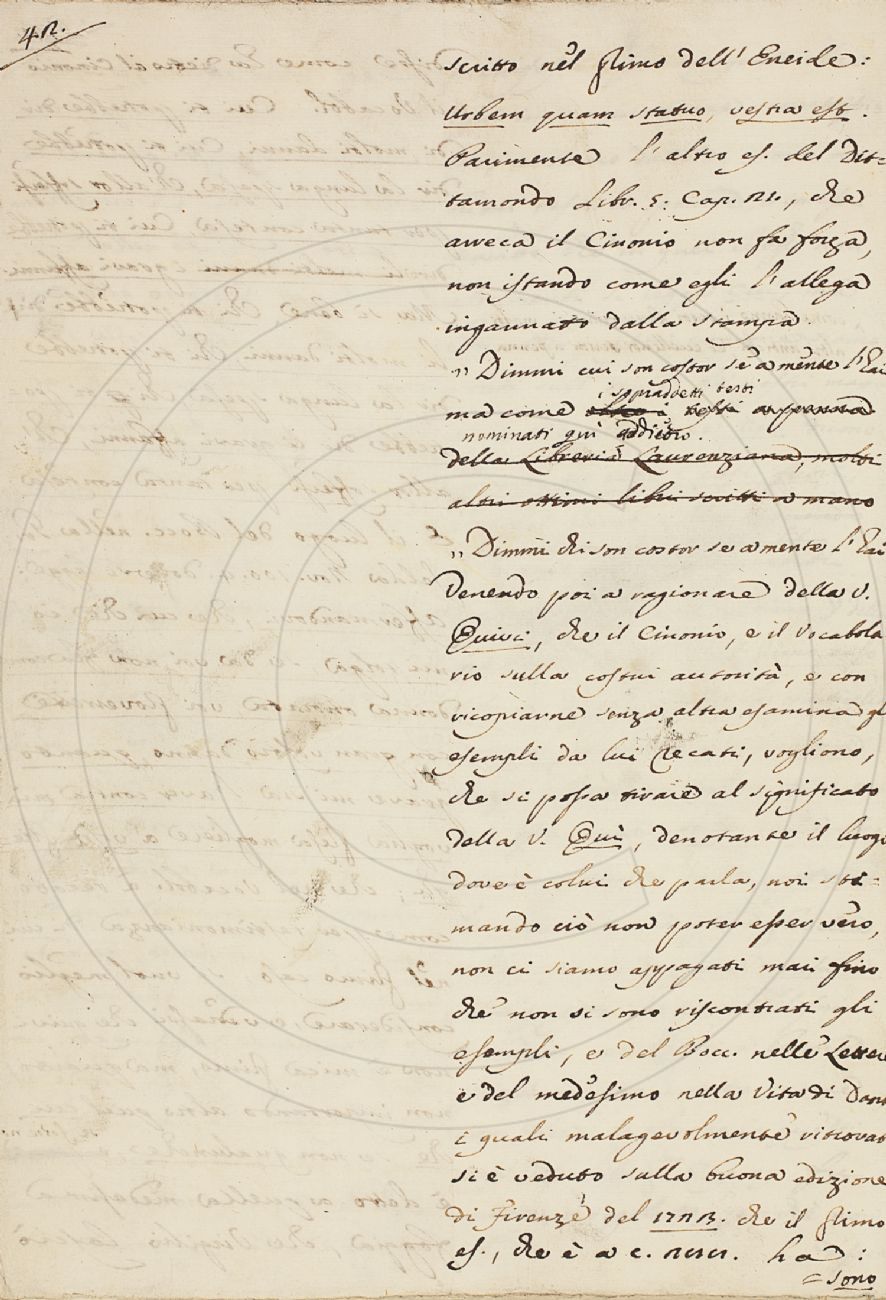 42.
scritto nel primo dell' Eneide:
Urbem quam statuo, vestra est.
Parimente l'altro es. del Dit=
tamondo Libr. 5. Cap. 21., che
arreca il Cinonio non fa forza,
non istando come egli l'allega
ingannato dalla stampa
" Dimmi cui son costor se a mente l'hai
i sopraddetti testi
ma come altro i testi a penna
nominati quì addietro.
della Libreria Laurenziana, molti
altri ottimi libri scritti a mano
" Dimmi chi son costor se a mente l'hai
Venendo poi a ragionare della V.
Quivi, che il Cinonio, e il Vocabola
rio sulla costui autorità, e con
ricopiarne senza altra esamina gl
esempli da lui recati, vogliono,
che si possa tirare al significato
della V. Quì, denotante il luogo
dove è colui che parla, noi sti=
mando ciò non poter esser vero,
non ci siamo appagati mai fino
che non si sono riscontrati gli
esempli, e del Bocc. nelle Lettere
e del medesimo nella Vita di Dant
i quali malagevolmente ritrovat
si è veduto sulla buona edizione
di Firenze del 1723. che il primo
es., che è a c. ha:
= sono